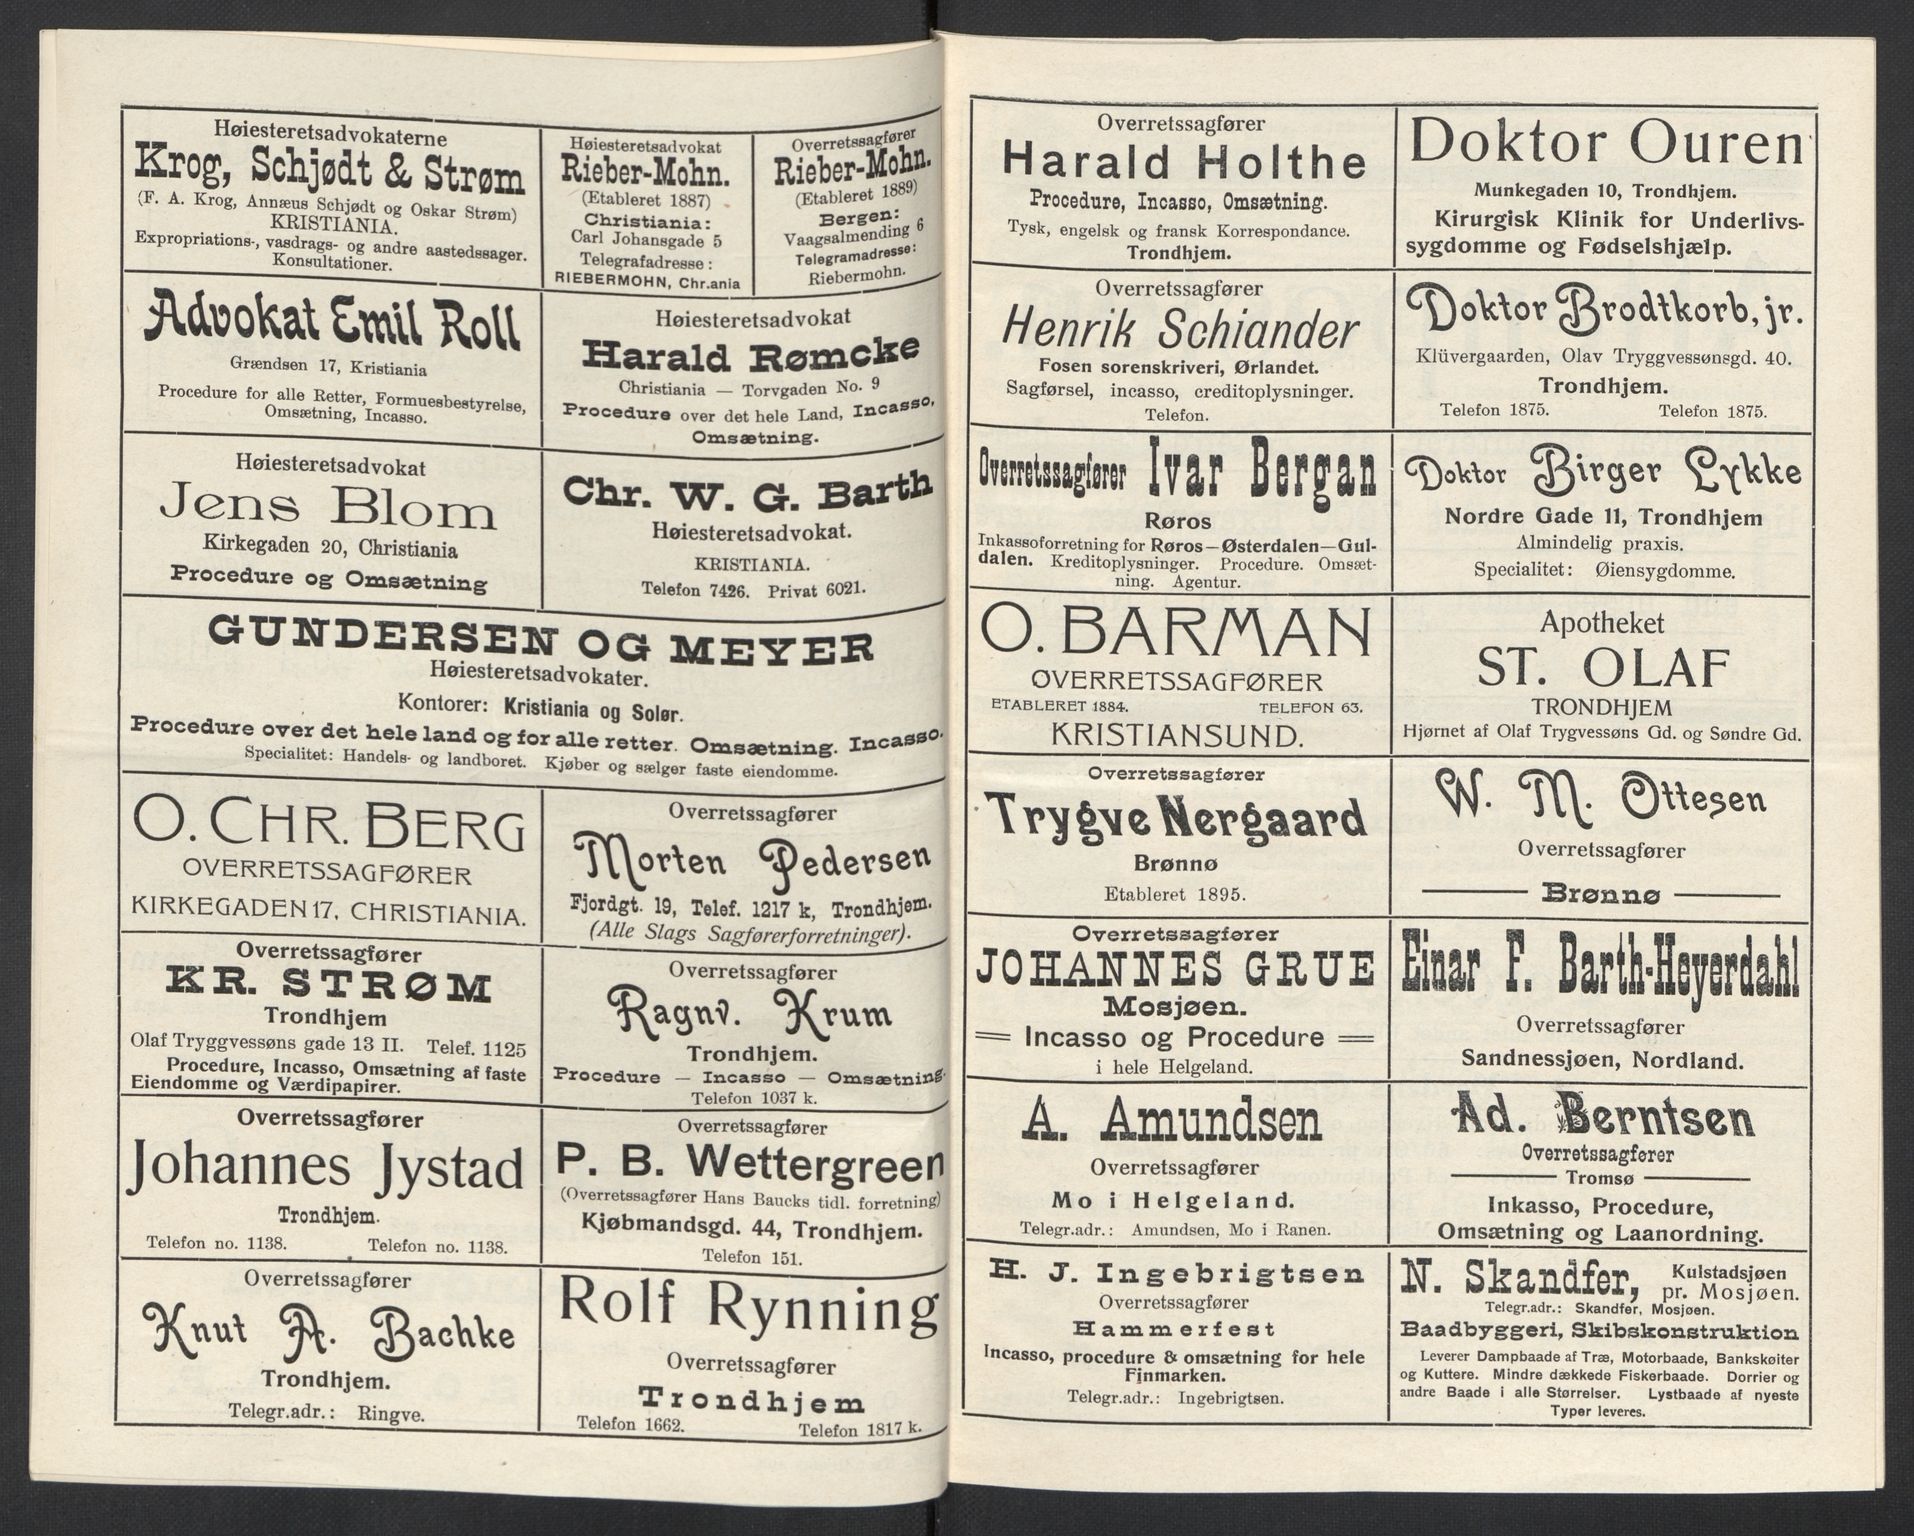 Høiesteretsadvokaterne
Krog, Schjødt & Strøm
(F. A. Krog, Annæus Schjødt og Oskar Strøm)
KRISTIANIA.
Expropriations-, vasdrags- og andre aastedssager.
Konsultationer.
Høiesteretsadvokat
Rieber-Mohn.
(Etableret 1887)
Christiania:
Carl Johansgade 5
Telegrafadresse:
RIEBERMOHN, Chr.ania
Overretssagfører
Rieber-Mohn.
(Etableret 1889)
Bergen:
Vaagsalmending 6
Telegramadresse:
Riebermohn.
Advokat Emil Roll
Grændsen 17, Kristiania
Procedure for alle Retter, Formuesbestyrelse,
Omsætning, Incasso.
Høiesteretsadvokat
Harald Rømcke
Christiania — Torvgaden No. 9
Procedure over det hele Land, Incasso,
Omsætning.
Høiesteretsadvokat
Jens Blom
Kirkegaden 20, Christiania
Procedure og Omsætning
Chr. W. G. Barth
Høiesteretsadvokat.
KRISTIANIA.
Telefon 7426. Privat 6021.
GUNDERSEN OG MEYER
Høiesteretsadvokater.
Kontorer: Kristiania og Solør.
Procedure over det hele land og for alle retter. Omsætning. Incasso.
Specialitet: Handels- og landboret. Kjøber og sælger faste eiendomme.
O. CHR. BERG
OVERRETSSAGFØRER
KIRKEGADEN 17, CHRISTIANIA.
Overretssagfører
Morten Pedersen
Fjordgt. 19, Telef. 1217 k, Trondhjem.
(Alle Slags Sagførerforretninger).
Overretssagfører
KR. STRØM
Trondhjem
Olaf Tryggvessøns gade 13 II. Telef. 1125
Procedure, Incasso, Omsætning af faste
Eiendomme og Værdipapirer.
Overretssagfører
Ragnv. Krum
Trondhjem.
Procedure — Incasso — Omsætning.
Telefon 1037 k.
Overretssagfører
Johannes Jystad
Trondhjem.
Telefon no. 1138. Telefon no. 1138.
Overretssagfører
P. B. Wettergreen
(Overretssagfører Hans Baucks tidl. forretning)
Kjøbmandsgd. 44, Trondhjem.
Telefon 151.
Overretssagfører
Knut A. Bachke
Trondhjem.
Telegr.adr.: Ringve.
Rolf Rynning
Overretssagfører
Trondhjem
Telefon 1662. Telefon 1817 k.
Overretssagfører
Harald Holthe
Procedure, Incasso, Omsætning.
Tysk, engelsk og fransk Korrespondance.
Trondhjem.
Doktor Ouren
Munkegaden 10, Trondhjem.
Kirurgisk Klinik for Underlivs-
sygdomme og Fødselshjælp.
Overretssagfører
Henrik Schiander
Fosen sorenskriveri, Ørlandet.
Sagførsel, incasso, creditoplysninger.
Telefon.
Doktor Brodtkorb, jr.
Klüvergaarden, Olav Tryggvessønsgd. 40.
Trondhjem.
Telefon 1875. Telefon 1875.
Overretssagfører Ivar Bergan
Røros
Inkassoforretning for Røros—Østerdalen—Gul-
dalen. Kreditoplysninger. Procedure. Omsæt-
ning. Agentur.
Doktor Birger Lykke
Nordre Gade 11, Trondhjem
Almindelig praxis.
Specialitet: Øiensygdomme.
O. BARMAN
OVERRETSSAGFØRER
ETABLERET 1884. TELEFON 63.
KRISTIANSUND.
Apotheket
ST. OLAF
TRONDHJEM
Hjørnet af Olaf Trygvessøns Gd. og Søndre Gd.
Overretssagfører
Trygve Nergaard
Brønnø
Etableret 1895.
W. M. Ottesen
Overretssagfører
Brønnø
Overretssagfører
JOHANNES GRUE
Mosjøen.
Incasso og Procedure
i hele Helgeland.
Einar F. Barth-Heyerdahl
Overretssagfører
Sandnessjøen, Nordland.
A. Amundsen
Overretssagfører
Mo i Helgeland.
Telegr.adr.: Amundsen, Mo i Ranen.
Ad. Berntsen
Overretssagfører
Tromsø
Inkasso, Procedure,
Omsætning og Laanordning.
H. J. Ingebrigtsen
Overretssagfører
Hammerfest
Incasso, procedure & omsætning for hele
Finmarken.
Telegr.adr.: Ingebrigtsen.
N. Skandfer, Kulstadsjøen
pr. Mosjøen.
Telegr.adr.: Skandfer, Mosjøen.
Baadbyggeri, Skibskonstruktion
Leverer Dampbaade af Træ, Motorbaade, Bankskøiter
og Kuttere. Mindre dækkede Fiskerbaade. Dorrier og
andre Baade i alle Størrelser. Lystbaade af nyeste
Typer leveres.